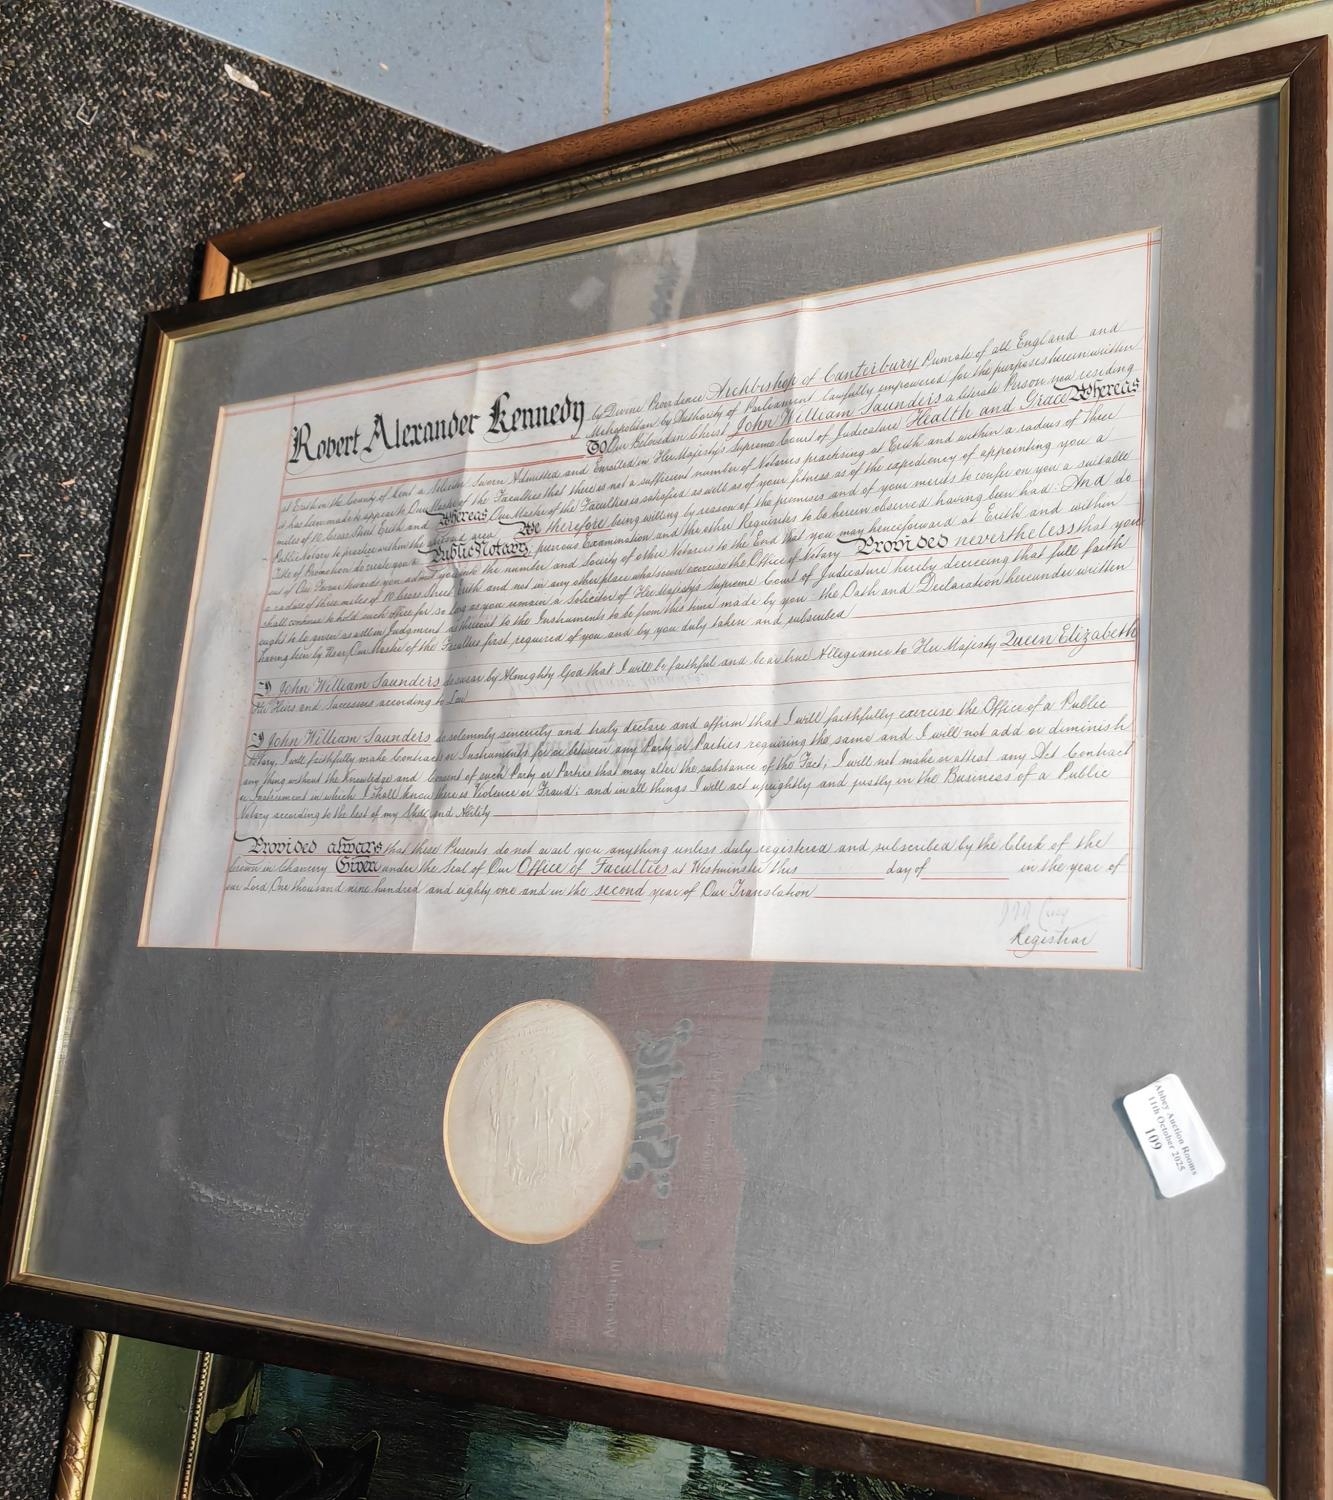 Robert Alexander Kennedy by Divine Providence Archbishop of Canterbury Primate of all England and
Metropolitan by Authority of Parliament Lawfully empowered for the purposes herein written
To Our Beloved in Christ John William Saunders a literate Person now residing
at Erith in the County of Kent a Solicitor Sworn Admitted and Enrolled in Her Majesty's Supreme Court of Judicature Health and Grace Whereas
it has been made to appear to Our Master of the Faculties that there is not a sufficient number of Notaries practising at Erith and within a radius of three
miles of 10 Cross Street Erith and Whereas Our Master of the Faculties is satisfied as well as of your fitness as of the expediency of appointing you a
Public Notary to practise within the aforesaid area We therefore being willing by reason of the premises and of your merits to confer on you a suitable
Title of Promotion do create you a Public Notary previous Examination and the other Requisites to be herein observed having been had And do
out of Our Favour towards you admit you into the number and Society of other Notaries to the End that you may henceforward at Erith and within
a radius of three miles of 10 Cross Street Erith and not in any other place whatsoever exercise the Office of Notary Provided nevertheless that you
shall continue to hold such office for so long as you remain a Solicitor of Her Majesty's Supreme Court of Judicature hereby decreeing that full faith
ought to be given as well in Judgment as thereout to the Instruments to be from this time made by you the Oath and Declaration hereunder written
having been by Us or Our Master of the Faculties first required of you and by you duly taken and subscribed
I John William Saunders do swear by Almighty God that I will be faithful and bear true Allegiance to Her Majesty Queen Elizabeth
Her Heirs and Successors according to Law
I John William Saunders do solemnly sincerely and truly declare and affirm that I will faithfully exercise the Office of a Public
Notary. I will faithfully make Contracts or Instruments for or between any Party or Parties requiring the same and I will not add or diminish
any thing without the Knowledge and Consent of such Party or Parties that may alter the substance of the Fact; I will not make or attest any Act Contract
or Instrument in which I shall know there is Violence or Fraud; and in all things I will act uprightly and justly in the Business of a Public
Notary according to the best of my Skill and Ability
Provided always that these Presents do not avail you anything unless duly registered and subscribed by the Clerk of the
Crown in Chancery Given under the Seal of Our Office of Faculties at Westminster this day of in the year of
our Lord One thousand nine hundred and eighty one and in the second year of Our Translation
Registrar
Abbey Auction Rooms
11th October 2025
109